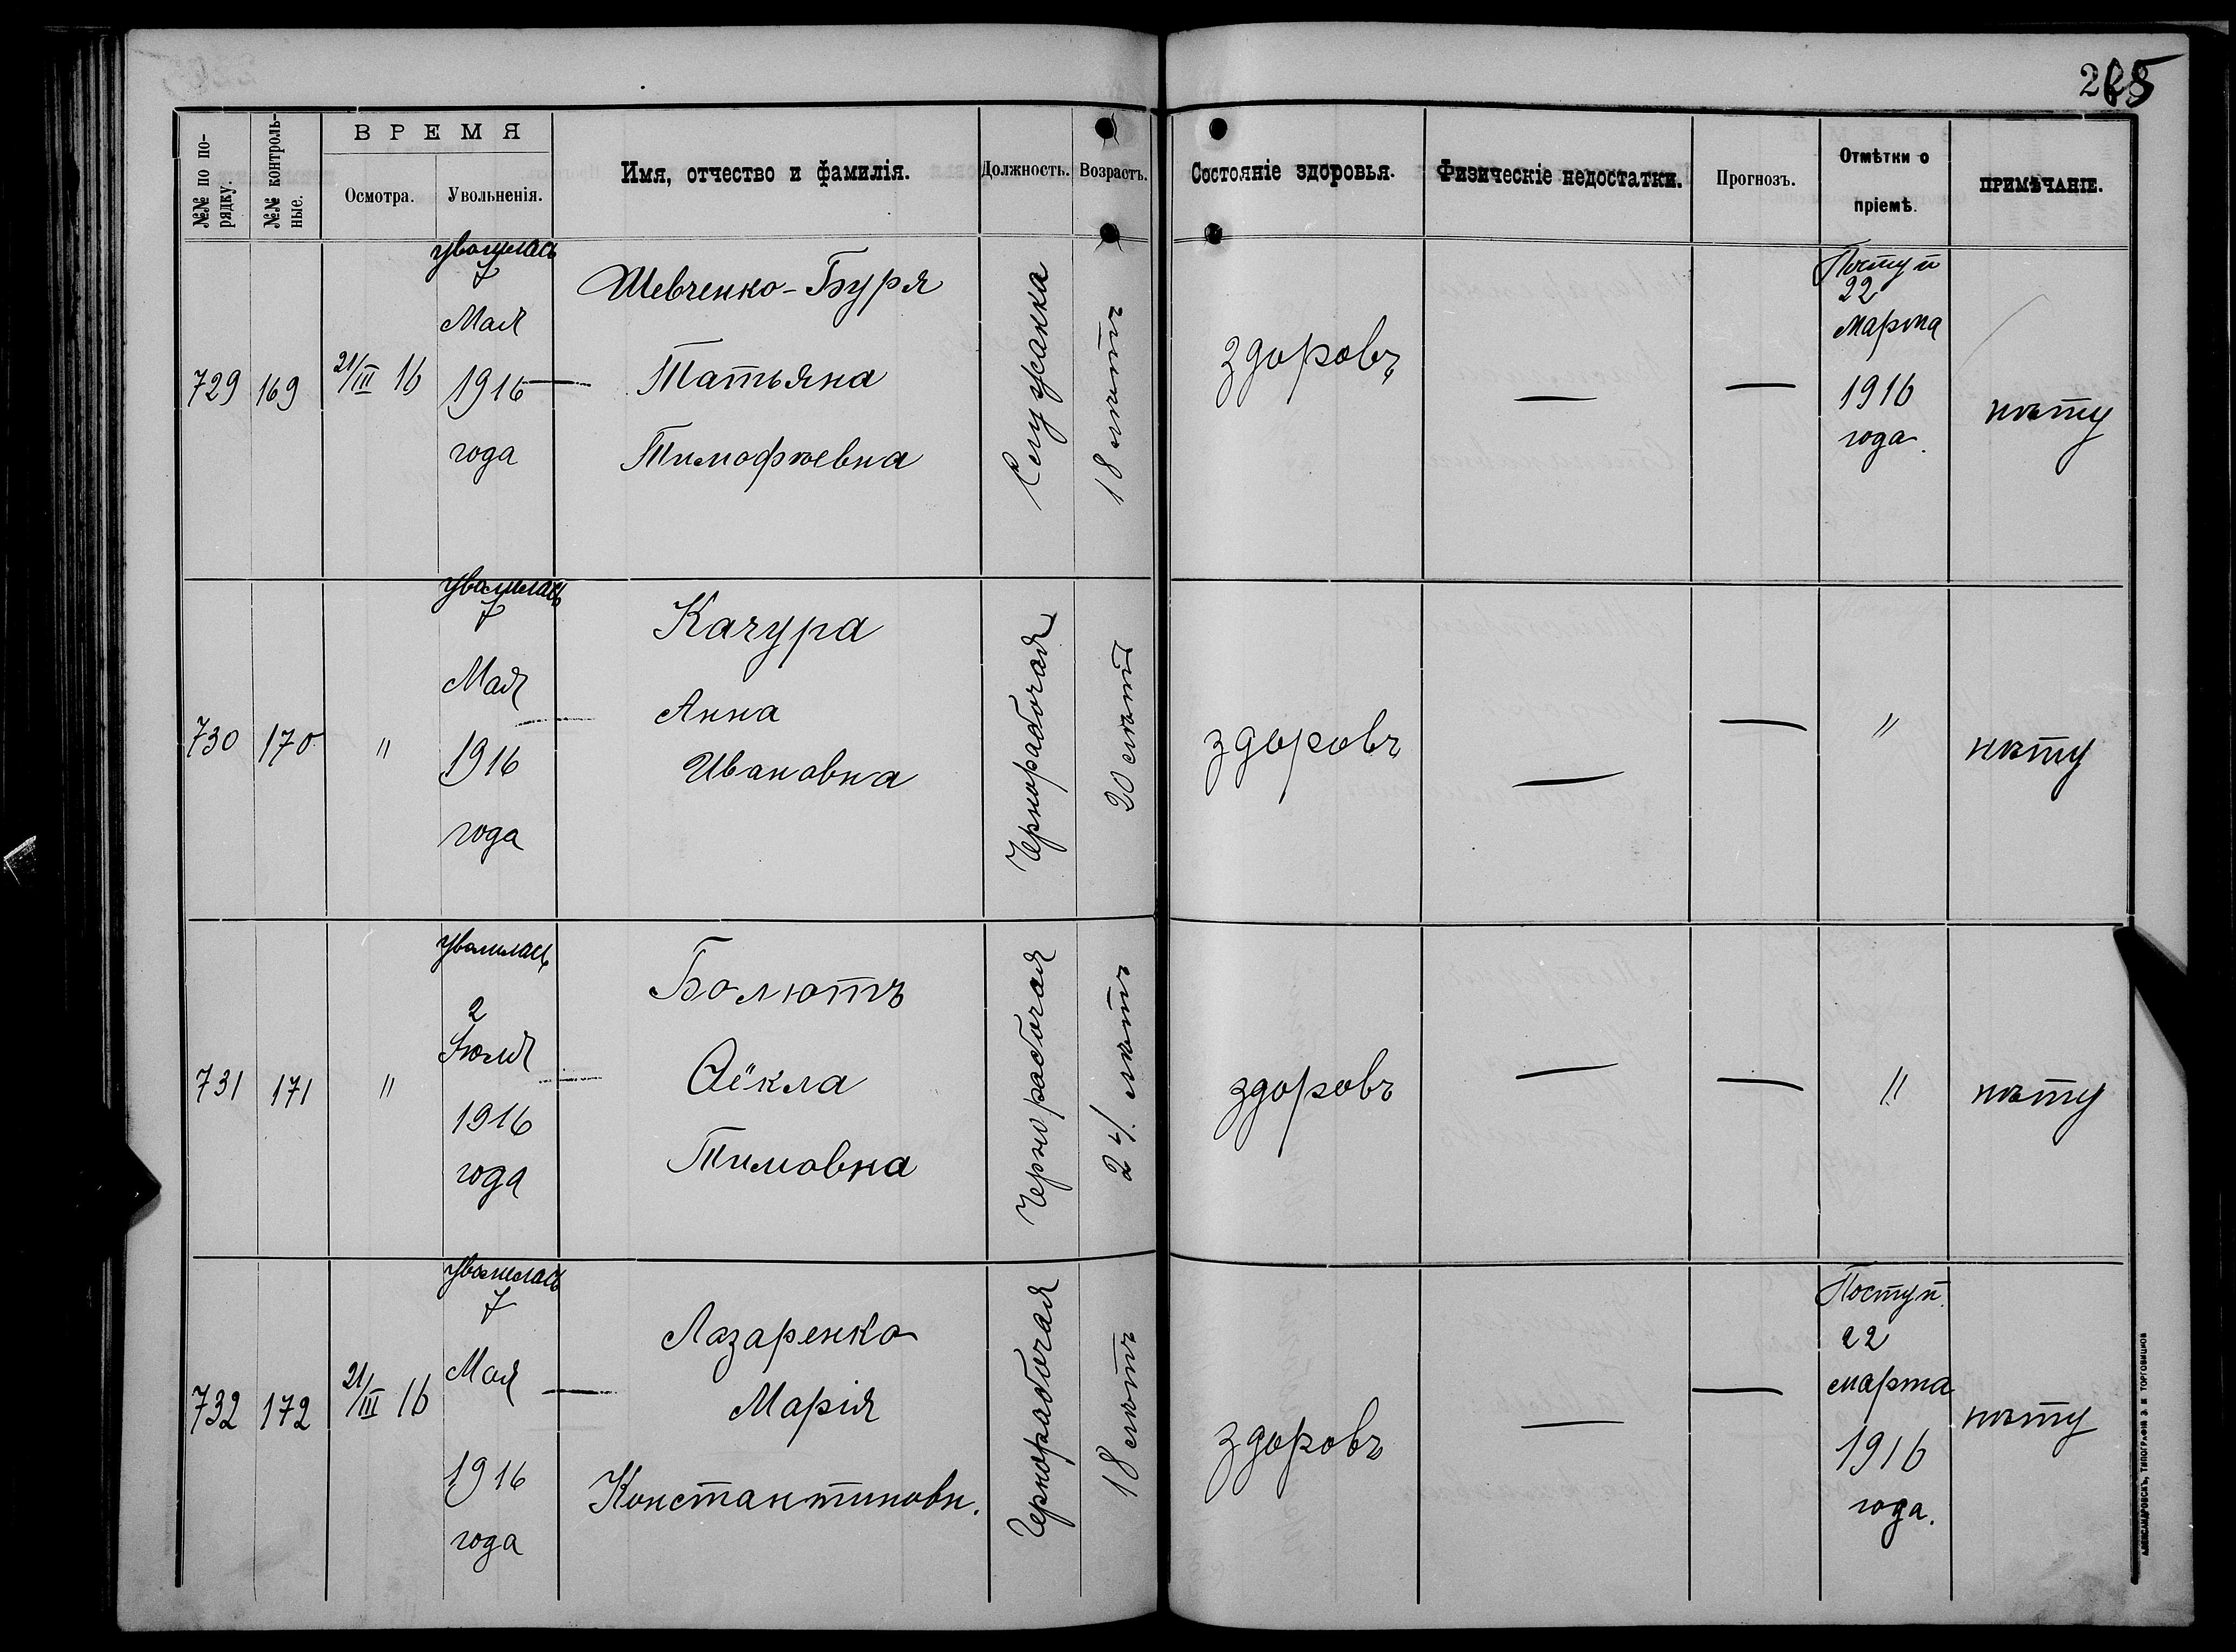 ВРЕМЯ
№№ по по-
рядку.
№№ контроль-
ные.
Осмотра.
Увольненія.
Имя, отчество и фамилія.
Должность.
Возрастъ.
Состояніе здоровья.
Физическіе недостатки.
Прогнозъ.
Отмѣтки о
пріемѣ.
ПРИМѢЧАНІЕ.
729
169
21/III 16
уволилась
7
Мая
1916
года
Шевченко-Буря
Татьяна
Тимофѣевна
Служанка
18 лѣтъ
здоровъ
—
—
Поступ
22
марта
1916
года.
нѣту
730
170
"
уволилась
7
Мая
1916
года
Качура
Анна
Ивановна
Чернорабочая
20 лѣтъ
здоровъ
—
—
"
нѣту
731
171
"
уволилась
2
Іюля
1916
года
Болютъ
Ѳёкла
Тимовна
Чернорабочая
24 лѣтъ
здоровъ
—
—
"
нѣту
732
172
21/III 16
уволилась
7
Мая
1916
года
Лазаренко
Марія
Константиновн.
Чернорабочая
18 лѣтъ
здоровъ
—
—
Поступ.
22
марта
1916
года.
нѣту